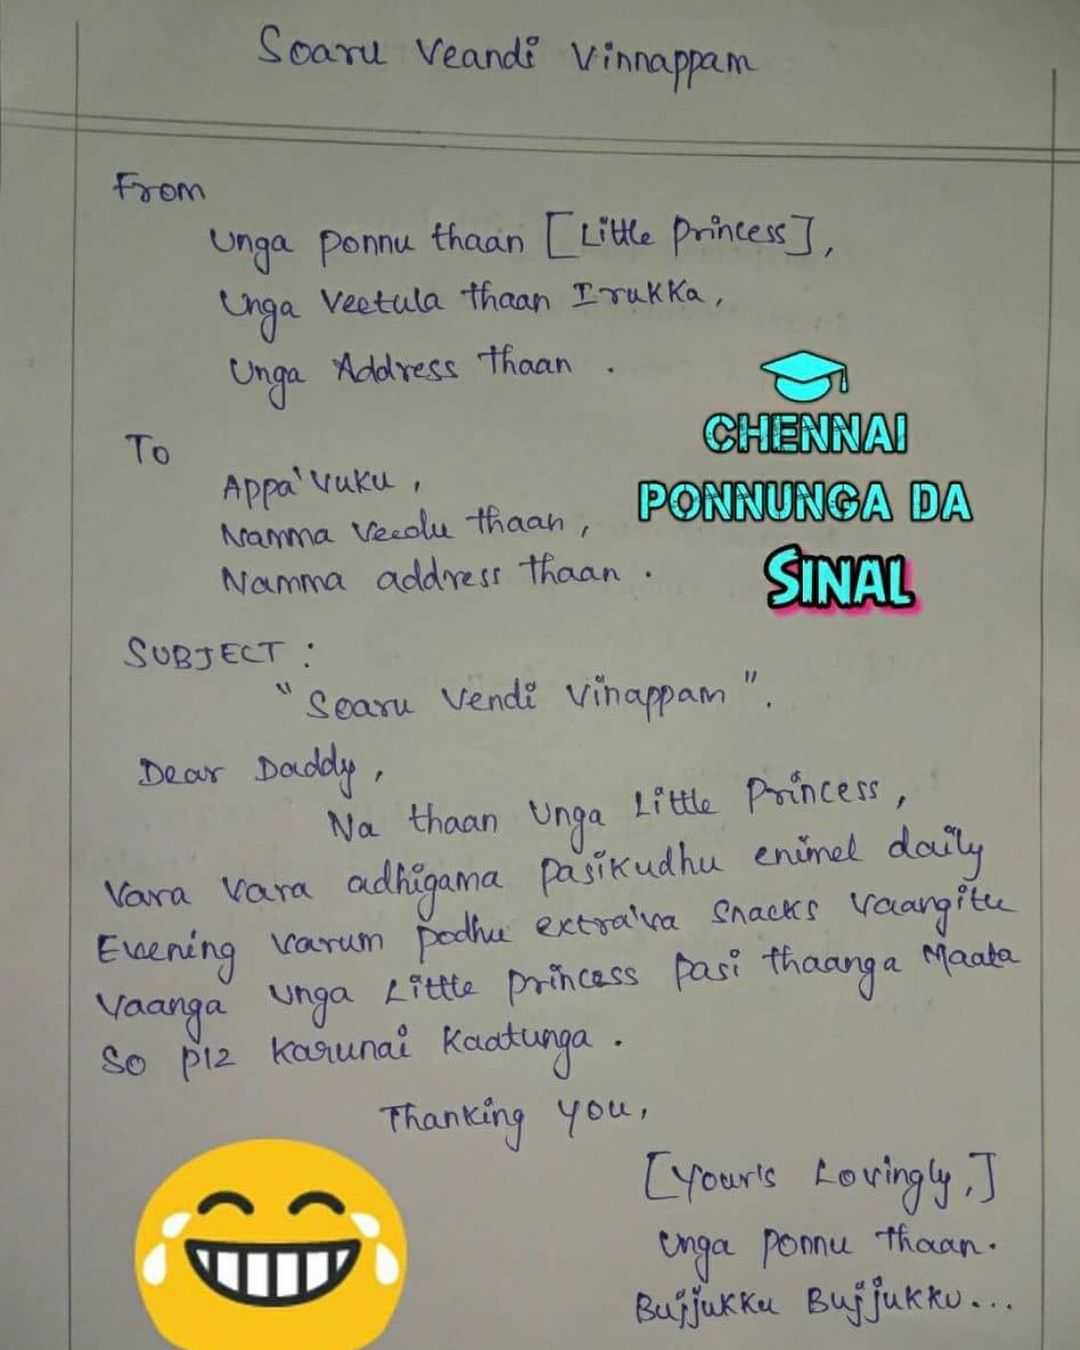 Soaru Veandi Vinnappam
From
Unga ponnu thaan [Little Princess],
Unga Veetula thaan Irukka,
Unga Address thaan .
CHENNAI
PONNUNGA DA
SINAL
To
Appa'vuku ,
Namma Veedu thaan ,
Namma address thaan .
SUBJECT :
" Soaru Vendi Vinappam ".
Dear Daddy ,
Na thaan Unga Little Princess ,
Vara Vara adhigama pasikudhu enimel daily
Evening varum podhu extra'va snacks vaangitu
Vaanga unga Little princess pasi thaanga Maata
So plz karunai kaatunga .
Thanking you ,
[Your's Lovingly,]
Unga ponnu thaan.
Bujjukku Bujjukku...